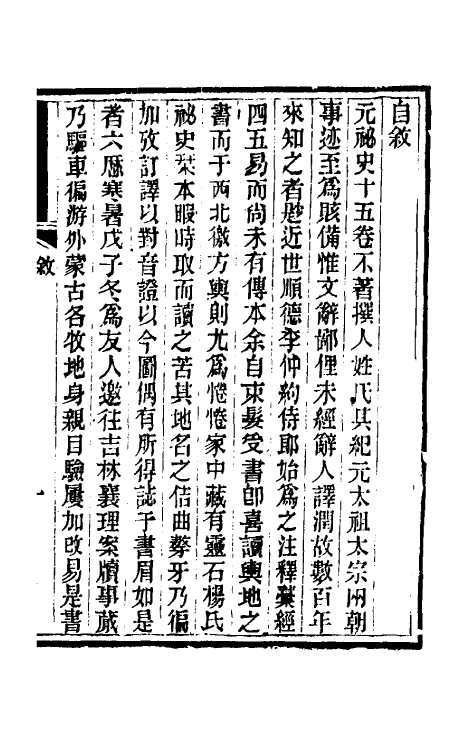 自敘
元祕史十五卷不著撰人姓氏其紀元太祖太宗兩朝
事迹至爲賅備惟文辭鄙俚未經辭人譯潤故數百年
來知之者尟近世順德李仲約侍郎始爲之注釋稾經
四五易而尚未有傳本余自束髮受書卽喜讀輿地之
書而于西北徼方輿則尤爲惓惓家中藏有靈石楊氏
祕史栞本暇時取而讀之苦其地名之佶曲聱牙乃徧
加攷訂譯以對音證以今圖偶有所得誌于書眉如是
者六厯寒暑戊子冬爲友人邀往吉林襄理案牘事蕆
乃驅車徧游外蒙古各牧地身親目驗屢加改易是書
敘
一